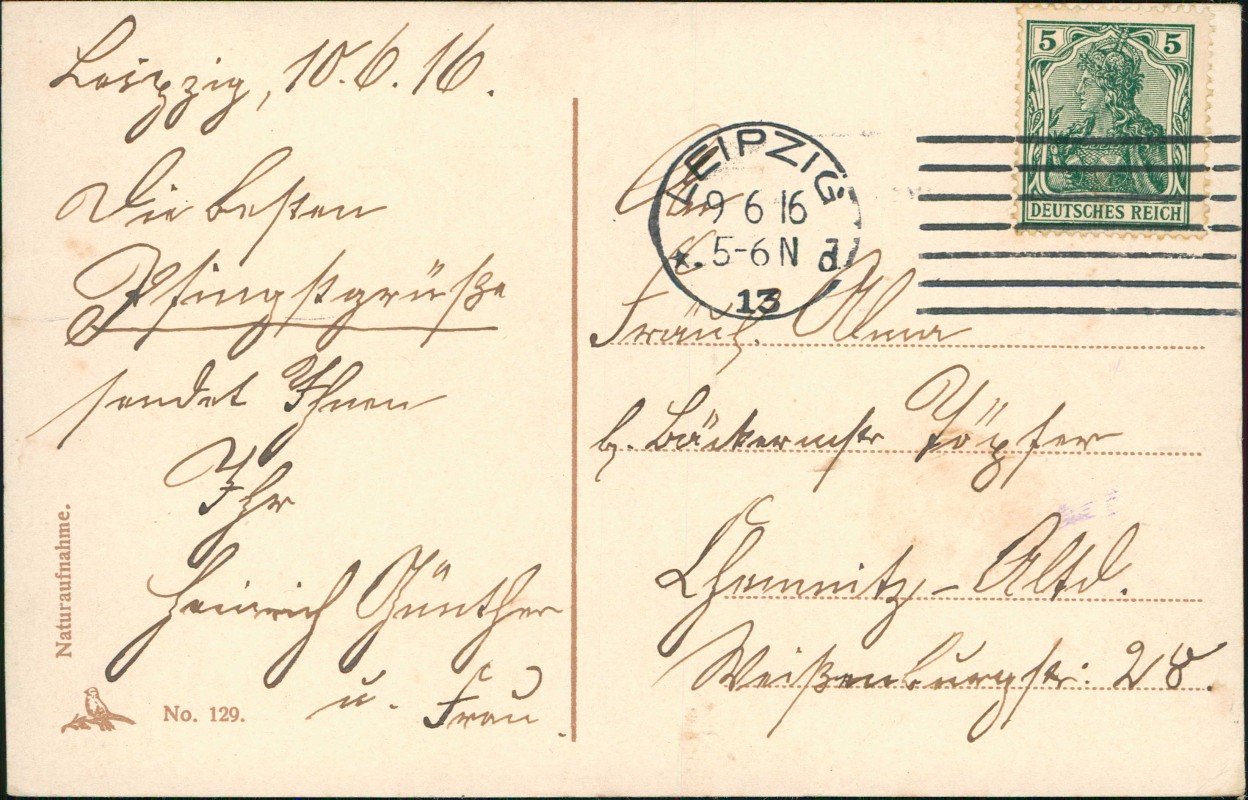 Leipzig, 10.6.16.
Die besten
Pfingstgrüße
sendet Ihnen
Ihr
Heinrich Günther
u. Frau.
Naturaufnahme.
No. 129.
5 5
DEUTSCHES REICH
LEIPZIG
9 6 16
*. 5-6 N d.
13
An
Fräul. Alma
b. Bäckermstr Töpfer
Chemnitz-Altd.
Weißenburgstr. 28.